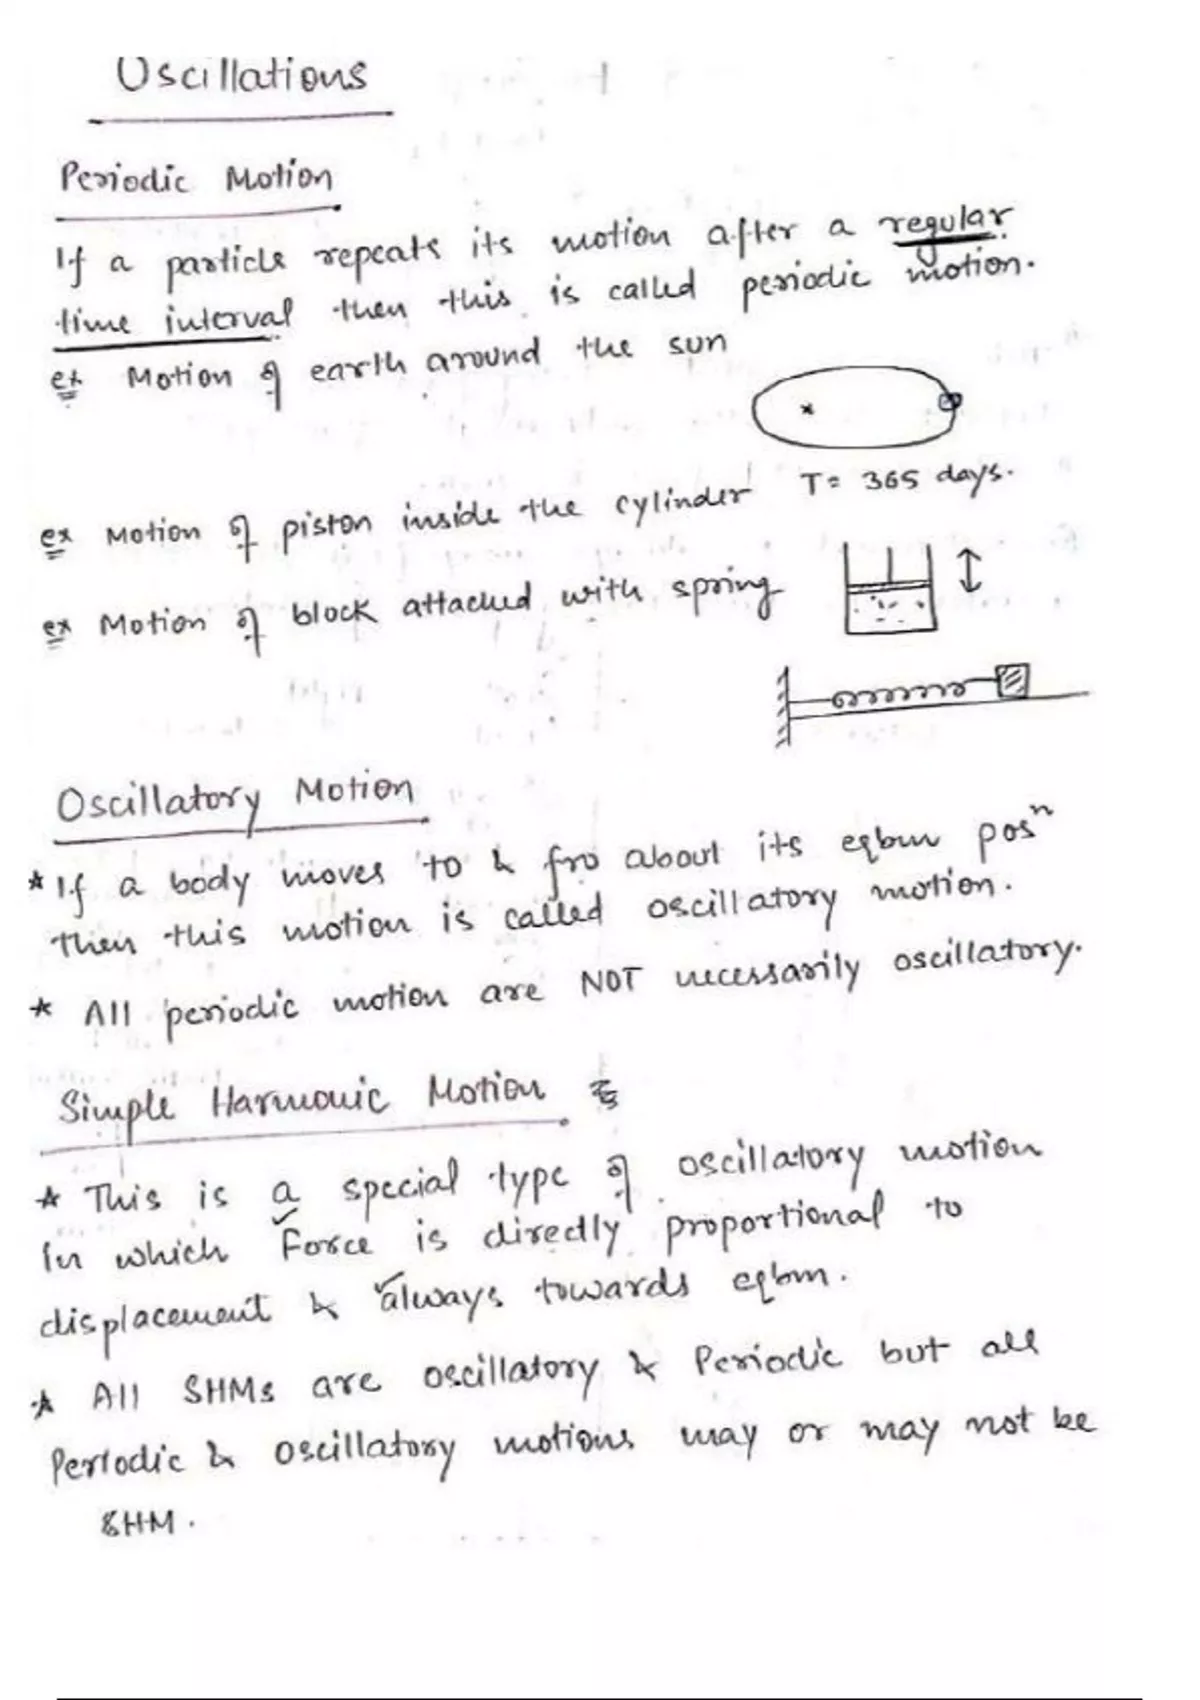 Oscillations
Periodic Motion
If a particle repeats its motion after a regular
time interval then this is called periodic motion.
ex Motion of earth around the sun
T= 365 days.
ex Motion of piston inside the cylinder
ex Motion of block attached with spring
Oscillatory Motion
* If a body moves to & fro about its eqbm posⁿ
then this motion is called oscillatory motion.
* All periodic motion are NOT necessarily oscillatory.
Simple Harmonic Motion
* This is a special type of oscillatory motion
in which Force is directly proportional to
displacement & always towards eqbm.
* All SHMs are oscillatory & Periodic but all
Periodic & oscillatory motions may or may not be
SHM.